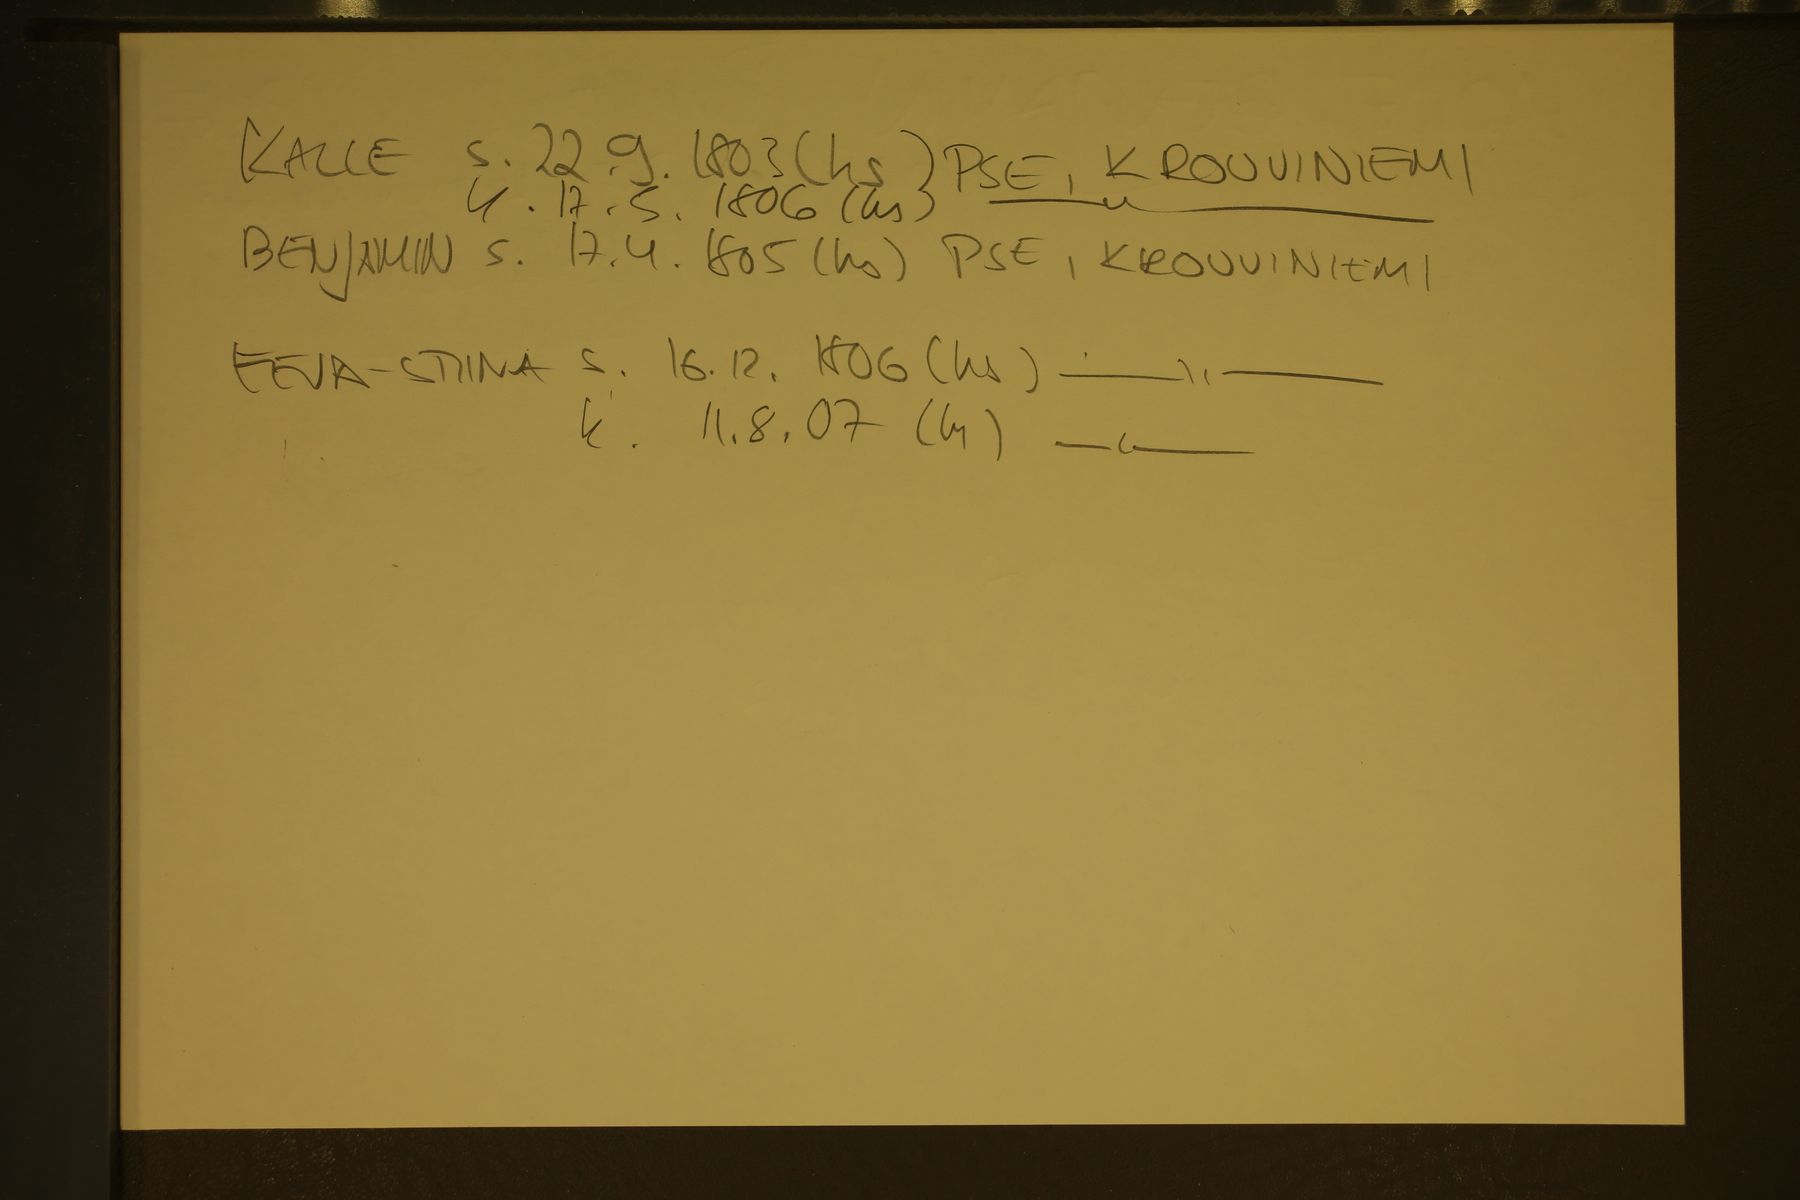 KALLE s. 22.9. 1803 (hs) PSE, KROUVINIEMI
k. 17.5. 1806 (hs) —"—
BENJAMIN s. 17.4. 1805 (hs) PSE, KROUVINIEMI
EEVA-STIINA s. 16.12. 1806 (hs) —"—
k. 11.8.07 (hs) —"—